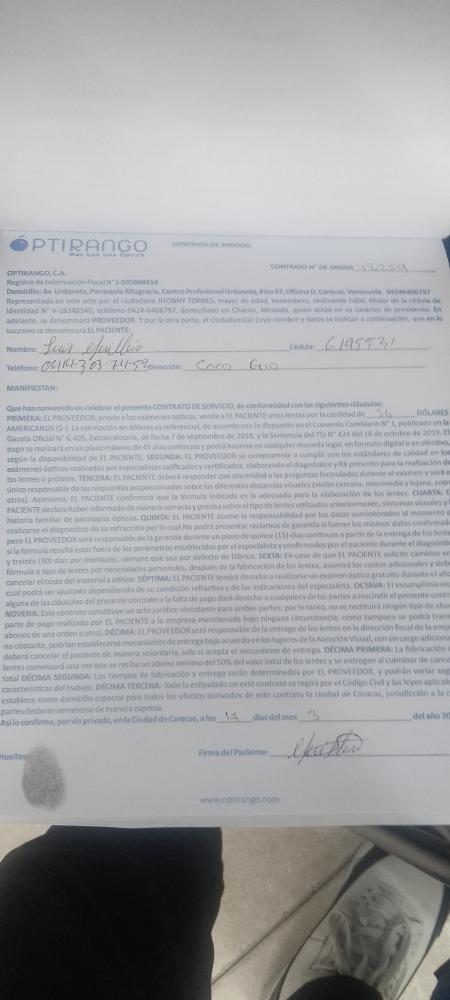 OPTIRANGO
Más que una Óptica
CONTRATO DE SERVICIO
CONTRATO N° DE ORDEN 12259
OPTIRANGO, C.A.
Registro de Información Fiscal N° J-505868454
Domicilio: Av. Urdaneta, Parroquia Altagracia, Centro Profesional Urdaneta, Piso 07, Oficina D, Caracas, Venezuela. 04246406797
Representada en este acto por el ciudadano JHONNY TORRES, mayor de edad, venezolano, civilmente hábil, titular de la cédula de
Identidad N° V-18348340, teléfono 0424-6406797, domiciliado en Chacao, Miranda, quien actúa en su carácter de presidente. En
adelante, se denominará PROVEEDOR. Y por la otra parte, el ciudadano(a) cuyo nombre y datos se indican a continuación, que en lo
sucesivo se denominará EL PACIENTE:
Nombre: Luis Cédula: 6.195531
Teléfono: 0414-303-7452 Dirección: Coco
MANIFIESTAN:
Que han convenido en celebrar el presente CONTRATO DE SERVICIO, de conformidad con las siguientes cláusulas:
PRIMERA: EL PROVEEDOR, previo a los exámenes ópticos, vende a EL PACIENTE unos lentes por la cantidad de 56 DÓLARES
AMERICANOS ($-). La estimación en dólares es referencial, de acuerdo con lo dispuesto en el Convenio Cambiario N° 1, publicado en la
Gaceta Oficial N° 6.405, Extraordinaria, de fecha 7 de septiembre de 2018, y la Sentencia del TSJ N° 424 del 16 de octubre de 2019. El
pago se realizará en un plazo máximo de 45 días continuos y podrá hacerse en cualquier moneda legal, en formato digital o en efectivo,
según la disponibilidad de EL PACIENTE. SEGUNDA: EL PROVEEDOR se compromete a cumplir con los estándares de calidad en los
exámenes ópticos realizados por especialistas calificados y certificados, elaborando el diagnóstico y RX prescrito para la realización de
los lentes o prótesis. TERCERA: EL PACIENTE deberá responder con sinceridad a las preguntas formuladas durante el examen y será e
único responsable de las respuestas proporcionadas sobre las diferentes distancias visuales (visión cercana, intermedia y lejana, entre
otras). Asimismo, EL PACIENTE confirmará que la fórmula indicada es la adecuada para la elaboración de los lentes. CUARTA: E
PACIENTE declara haber informado de manera correcta y precisa sobre el tipo de lentes utilizados anteriormente, síntomas visuales y
historia familiar de patologías ópticas. QUINTA: EL PACIENTE asume la responsabilidad por los datos suministrados al momento
realizarse el diagnóstico de su refracción por lo cual No podrá presentar reclamos de garantía si fueran los mismos datos confirmad
pero EL PROVEEDOR será responsable de la garantía durante un plazo de quince (15) días continuos a partir de la entrega de los lente
si la fórmula resulta estar fuera de los parámetros establecidos por el especialista y confirmados por el paciente durante el diagnóstic
y treinta (30) días por monturas, siempre que sea por defecto de fábrica. SEXTA: En caso de que EL PACIENTE solicite cambios en
fórmula o tipo de lentes por necesidades personales, después de la fabricación de los lentes, asumirá los costos adicionales y debe
cancelar el costo del material a utilizar. SÉPTIMA: EL PACIENTE tendrá derecho a realizarse un examen óptico gratuito durante el año
cual podrá ser ajustado dependiendo de su condición refractiva y de las indicaciones del especialista. OCTAVA: El incumplimient
alguna de las cláusulas del presente contrato o la falta de pago dará derecho a cualquiera de las partes a rescindir el presente contr
NOVENA: Este contrato constituye un acto jurídico vinculante para ambas partes; por lo tanto, no se restituirá ningún tipo de abo
parte de pago realizado por EL PACIENTE a la empresa mencionada bajo ninguna circunstancia, como tampoco se podrá trans
abonos de una orden a otra). DÉCIMA: EL PROVEEDOR será responsable de la entrega de los lentes en la dirección fiscal de la emp
no obstante, podrían establecerse mecanismos de entrega bajo acuerdo en los lugares de la Atención Visual, con un cargo adiciona
deberá cancelar el paciente de manera voluntaria, solo si acepta el mecanismo de entrega. DÉCIMA PRIMERA: La fabricación
lentes comenzará una vez que se reciba un abono mínimo del 50% del valor total de los lentes y se entregan al culminar de cance
total DÉCIMA SEGUNDA: Los tiempos de fabricación y entrega serán determinados por EL PROVEEDOR, y podrán variar seg
características del trabajo. DÉCIMA TERCERA: Todo lo estipulado en este contrato se regirá por el Código Civil y las leyes aplicab
establece como domicilio especial para todos los efectos derivados de este contrato la ciudad de Caracas, jurisdicción a la c
partes declaran someterse de manera expresa.
Así lo confirmo, por vía privada, en la Ciudad de Caracas, a los días del mes 3 del año 20
Huellas
Firma del Paciente:
www.optirango.com